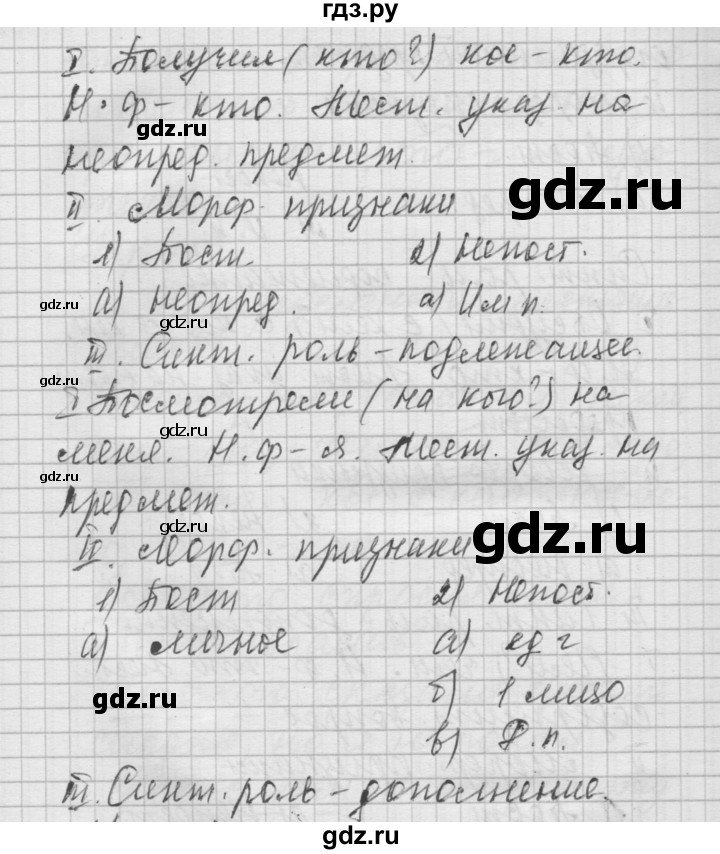 гдз.ру
I. Получил (кто?) кое-кто.
Н.ф - кто. Мест. указ. на
gdz.ru
неопред. предмет.
gdz.ru
II. Морф. признаки
1) Пост 2) Непост.
gdz.ru а) неопред. а) Им п. gdz.ru
gdz.ru
III. Синт. роль - подлежащее.
gdz.ru
I Посмотрели (на кого?) на
меня. Н.ф - я. Мест. указ. на
gdz.ru
предмет.
gdz.ru gdz.ru
II. Морф. признаки
1) Пост 2) Непост.
gdz.ru
а) личное а) ед г
gdz.ru б) 1 лицо
в) Р.п.
gdz.ru
III. Синт. роль - дополнение.
gdz.ru
gdz.ru